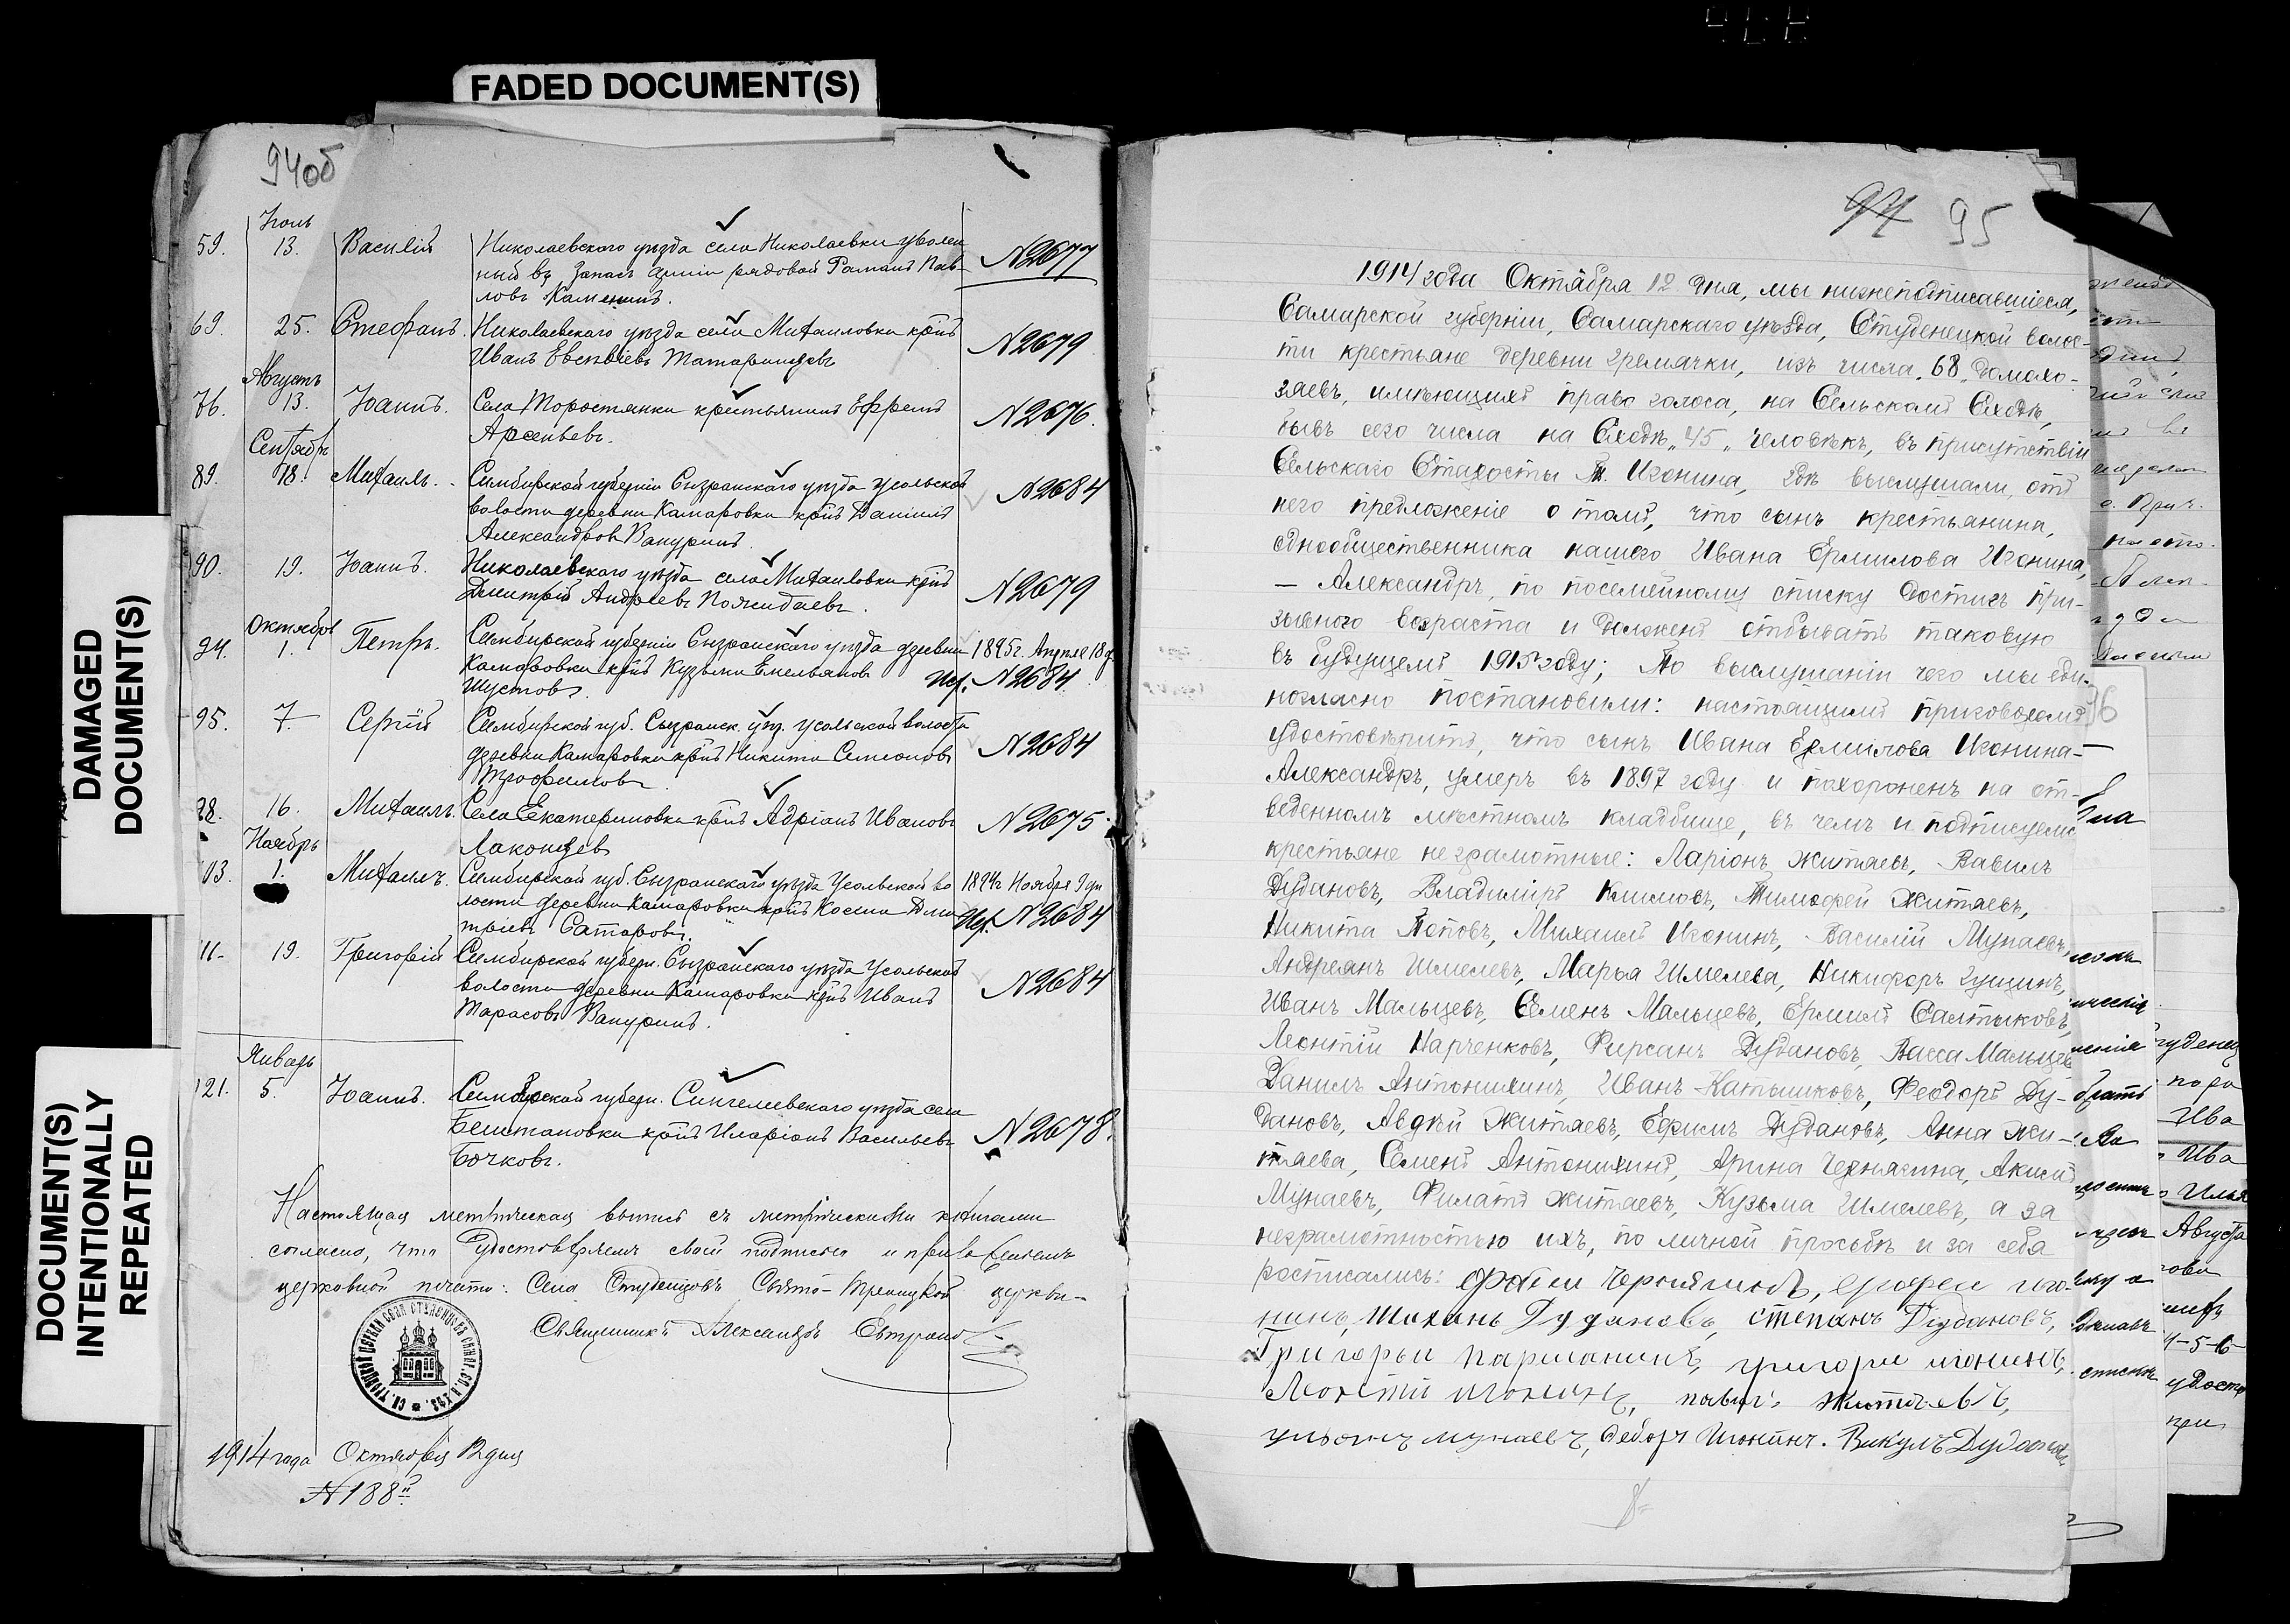 FADED DOCUMENT(S)
DAMAGED
DOCUMENT(S)
DOCUMENT(S)
INTENTIONALLY
REPEATED
94об
Іюль
59. 13. Василій Николаевского уѣзда села Николаевки уволен
ный въ запасъ арміи рядовой Романъ Пав-
ловъ Каменинъ. N2677
69. 25. Стефанъ. Николаевскаго уѣзда села Михаиловки кр̃нъ
Иванъ Евсевіевъ Татаринцевъ N2679
Августъ
76. 13. Іоаннъ. Села Торостянки крестьянинъ Ефремъ
Арсеньевъ. N2676.
Сентябрь
89. 18. Михаилъ. Симбирской губерніи Сызранскаго уѣзда Усольской
волости деревни Камаровки кр̃нъ Даніилъ
Александровъ Вануринъ. N2684
90. 19. Іоаннъ. Николаевскаго уѣзда села Михаиловки кр̃нъ
Дмитрій Андреевъ Пожидаевъ. N2679
Октябрь
94. 1. Петръ. Симбирской губерніи Сызранскаго уѣзда деревни
Камаровки кр̃нъ Кузьма Емельяновъ
Шустовъ. 1895г. Апрѣля 18д.
N2684
95. 7 Сергій Симбирской губ. Сызранск. уѣз. Усольской волости
деревни Камаровки кр̃нъ Никита Семіоновъ
Трофимовъ. N2684
98. 16. Михаилъ. Села Екатериновки кр̃нъ Адріанъ Ивановъ
Лаконцевъ N2675
Ноябрь
103. 1. Михаилъ. Симбирской губ. Сызранскаго уѣзда Усольской во
лости деревни Камаровки кр̃нъ Косма Дми
тріевъ Сатаровъ. 1894г Ноября 9дн
N2684
111. 19. Григорій Симбирской губерн. Сызранскаго уѣзда Усольской
волости деревни Камаровки кр̃нъ Иванъ
Тарасовъ Вануринъ. N2684
Январь
121. 5. Іоаннъ. Симбирской губерн. Сингелеевскаго уѣзда села
Бештановки кр̃нъ Иларіонъ Васильевъ
Бочковъ. N2678.
Настоящая метрическая выпись съ метрическими книгами
согласна, что удостовѣряемъ своей подписью и приложеніемъ
церковной печати: Села Студенцовъ Свято-Троицкой церкви-
Священникъ Александръ
1914 года Октября 12 дня
N188й
94 95
1914 года Октября 12 дня, мы нижеподписавшіеся,
Самарской губерніи, Самарскаго уѣзда, Студенецкой волос-
ти крестьяне деревни Гремячки, изъ числа "68" домохо-
заевъ, имѣющихъ право голоса, на Сельскомъ Сходѣ,
бывъ сего числа на Сходѣ "45" человѣкъ, въ присутствіи
Сельскаго Старосты Т. Игонина, гдѣ выслушали отъ
него предложеніе о томъ, что сынъ крестьянина,
однообщественника нашего Ивана Ермилова Игонина,
— Александръ, по посемейному списку достигъ при-
зывного возраста и долженъ отбывать таковую
въ будущемъ 1915 году; По выслушаніи чего мы еди-
ногласно постановили: настоящимъ приговоромъ
удостовѣрить, что сынъ Ивана Ермилова Игонина—
Александръ, умеръ въ 1897 году и похороненъ на от-
веденномъ мѣстномъ кладбище, въ чемъ и подписуемс
крестьяне неграмотные: Ларіонъ Житяевъ, Вавилъ
Дудановъ, Владиміръ Климовъ, Тимофей Житяевъ,
Никита Поповъ, Михаилъ Игонинъ, Василій Мунаевъ,
Андреянъ Шмелевъ, Марья Шмелева, Никифоръ Гущинъ,
Иванъ Мальцевъ, Семенъ Мальцевъ, Ермилъ Салтыковъ,
Леонтій Нарченковъ, Фирсанъ Дудановъ, Васса Мальцев
Данилъ Антонихинъ, Иванъ Катышковъ, Феодоръ Ду-
дановъ, Авдѣй Житяевъ, Ефимъ Дудановъ, Анна Жи-
тяева, Семенъ Антонихинъ, Арина Чернягина, Акимъ
Мунаевъ, Филатъ Житяевъ, Кузьма Шмелевъ, а за
неграмотностью ихъ, по личной просьбѣ и за себя
росписались: Чернягинъ, Ерофеи иго-
нинъ, Дудановъ, степанъ Дудановъ,
Григорьи Паршанинъ, григори игонинъ,
Леонтий игонинъ, павил Житяевъ,
ульянъ мунаевъ, Федоръ Игонинъ. Викулъ Дуданов